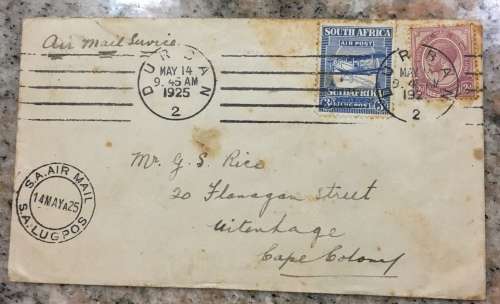 Air Mail Service.
DURBAN
MAY 14
9. 45 AM
1925
2
SOUTH AFRICA
AIR POST
DURBAN
MAY
9. 45 AM
192
2
S.A. AIR MAIL
14 MAY 25
S.A. LUGPOS
Mr. G. S. Rice
20 Flanagan Street
Uitenhage
Cape Colony